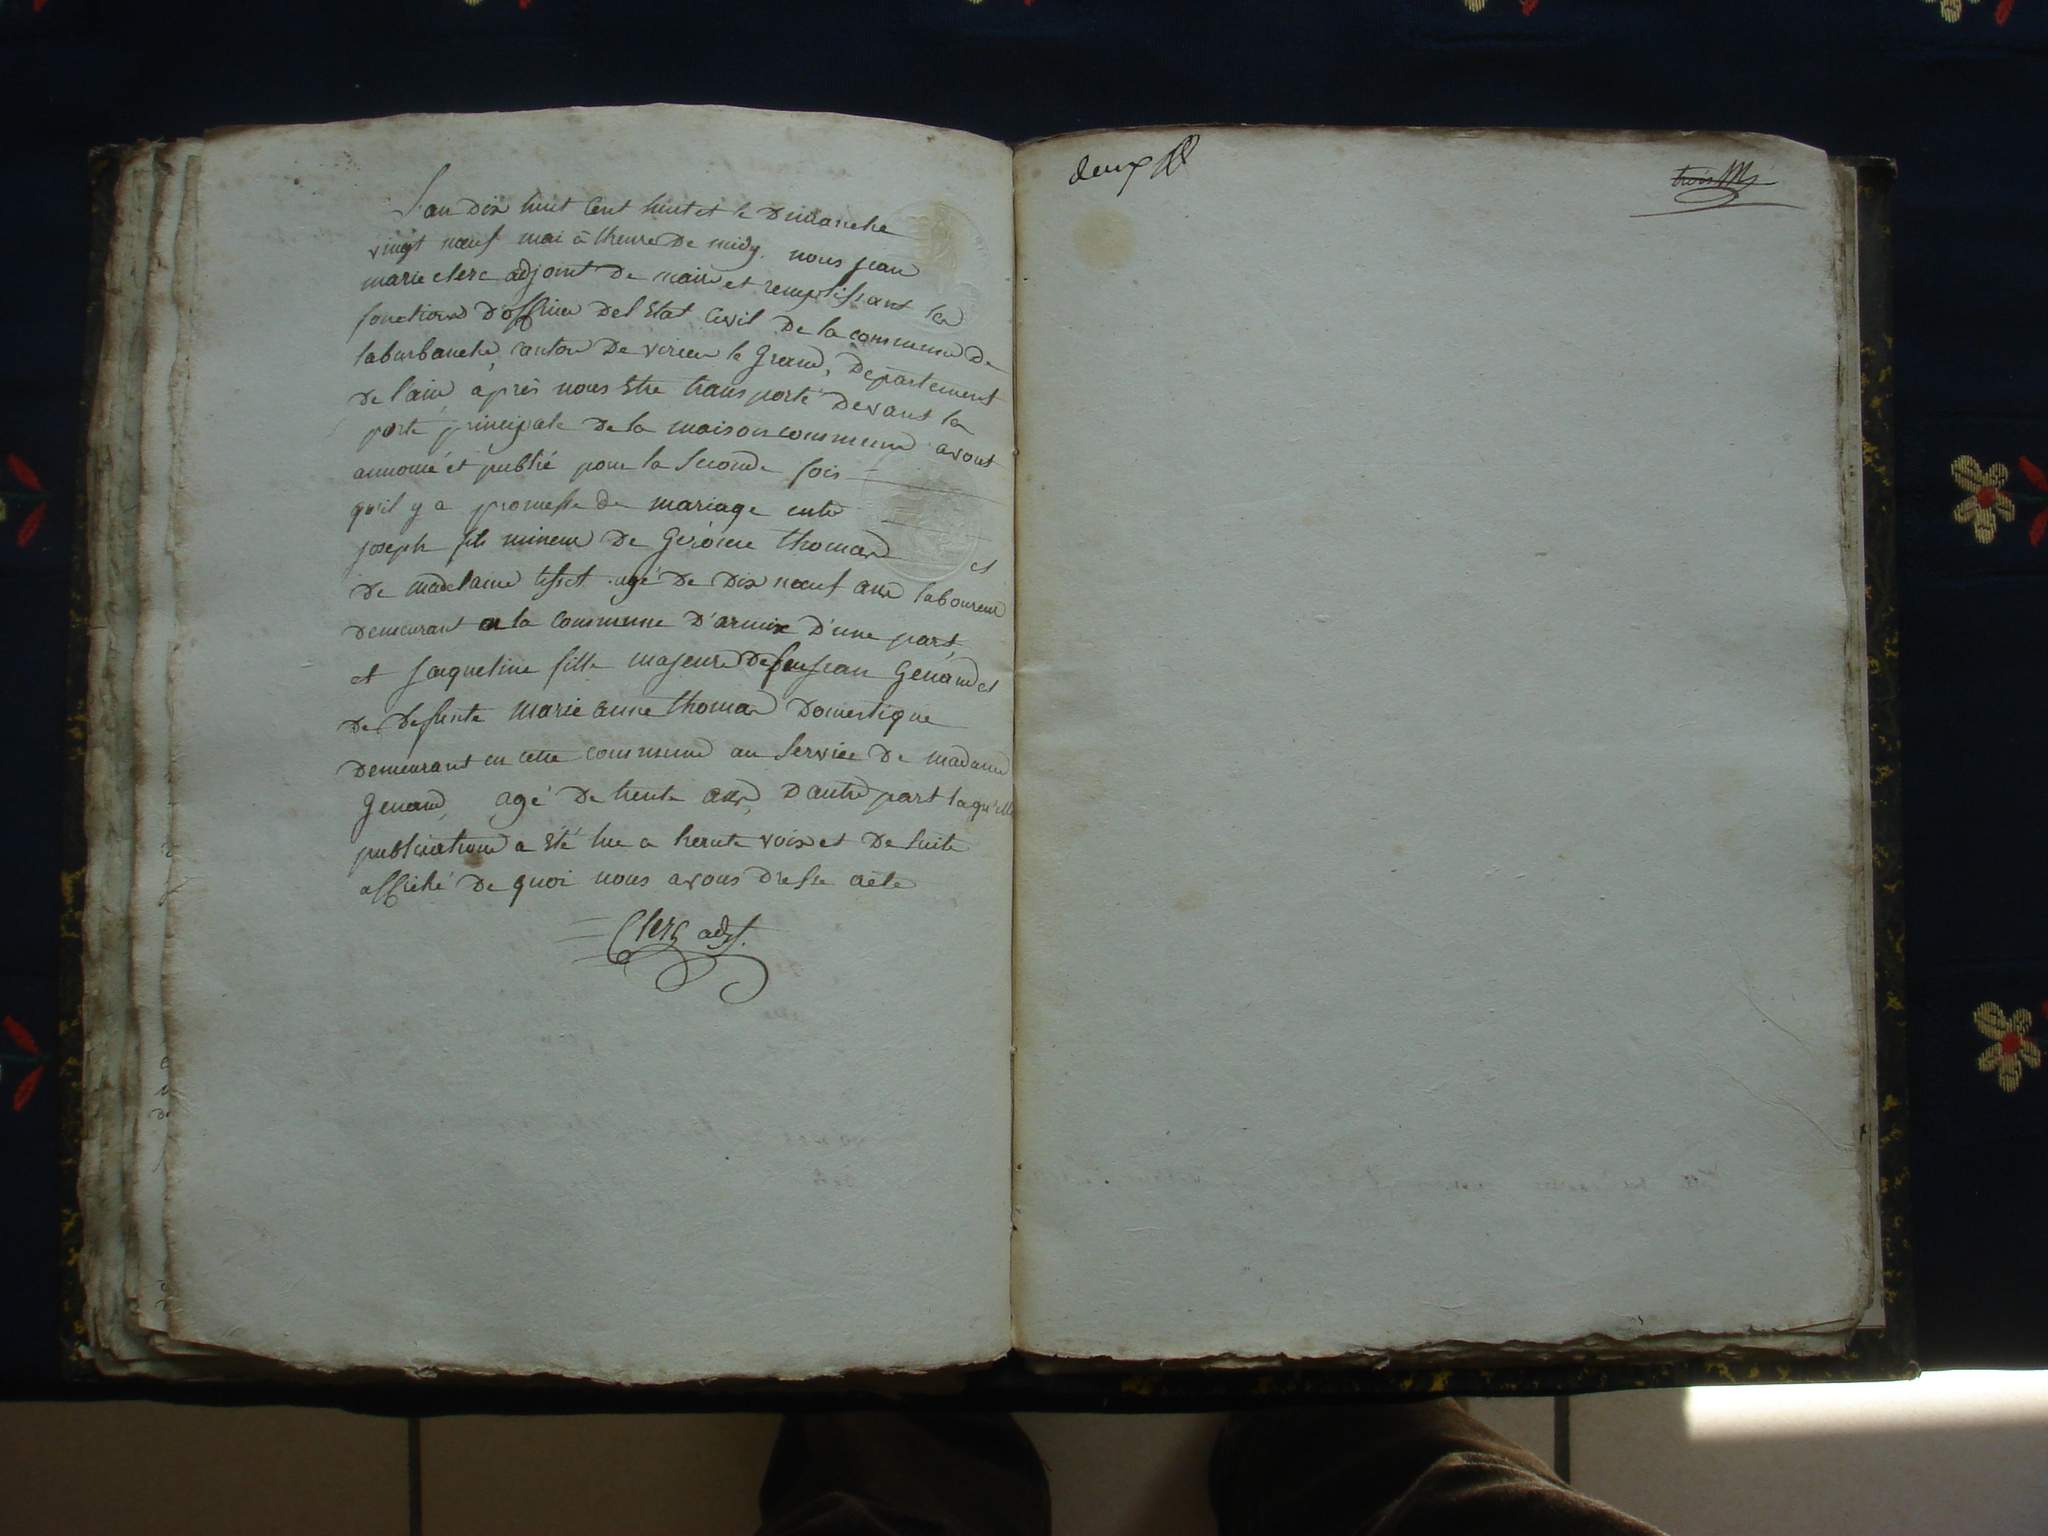 L'an dix huit cent huit et le Dimanche
vingt neuf mai à l'heure de midy. nous jean
marie clerc adjoint de maire et remplissant les
fonctions d'officier de l'Etat Civil de la commune de
laburbanche, canton de virieu le Grand, Departement
de l'ain après nous Etre transporté devant la
porte principale de la maison commune avons
annoncé et publié pour la seconde fois
qu'il y a promesse de mariage entre
joseph fils mineur de Gérôme thomas et
de madelaine tisset agé de dix neuf ans laboureur
demeurant en la commune d'armix d'une part,
et jaqueline fille majeure de feu jean Genand et
de defunte marie anne thomas domestique
demeurant en cette commune au service de madame
Genand, agé de trente ans, d'autre part laquelle
publication a été lue a haute voix et de suite
affiché de quoi nous avons dressé acte
Clerc adjt.
deux
trois